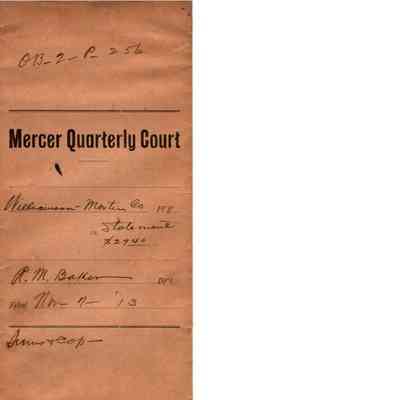 OB-2-P-256
Mercer Quarterly Court
Williamson-Martin Co Plff.
Statement
$27.40
R. M. Baker Dft.
Filed Nov-7-'13
Sums & Cop-